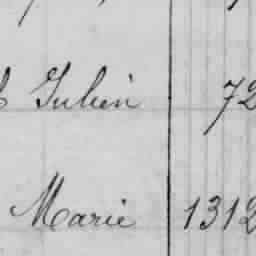 Julien 72
Marie 1312